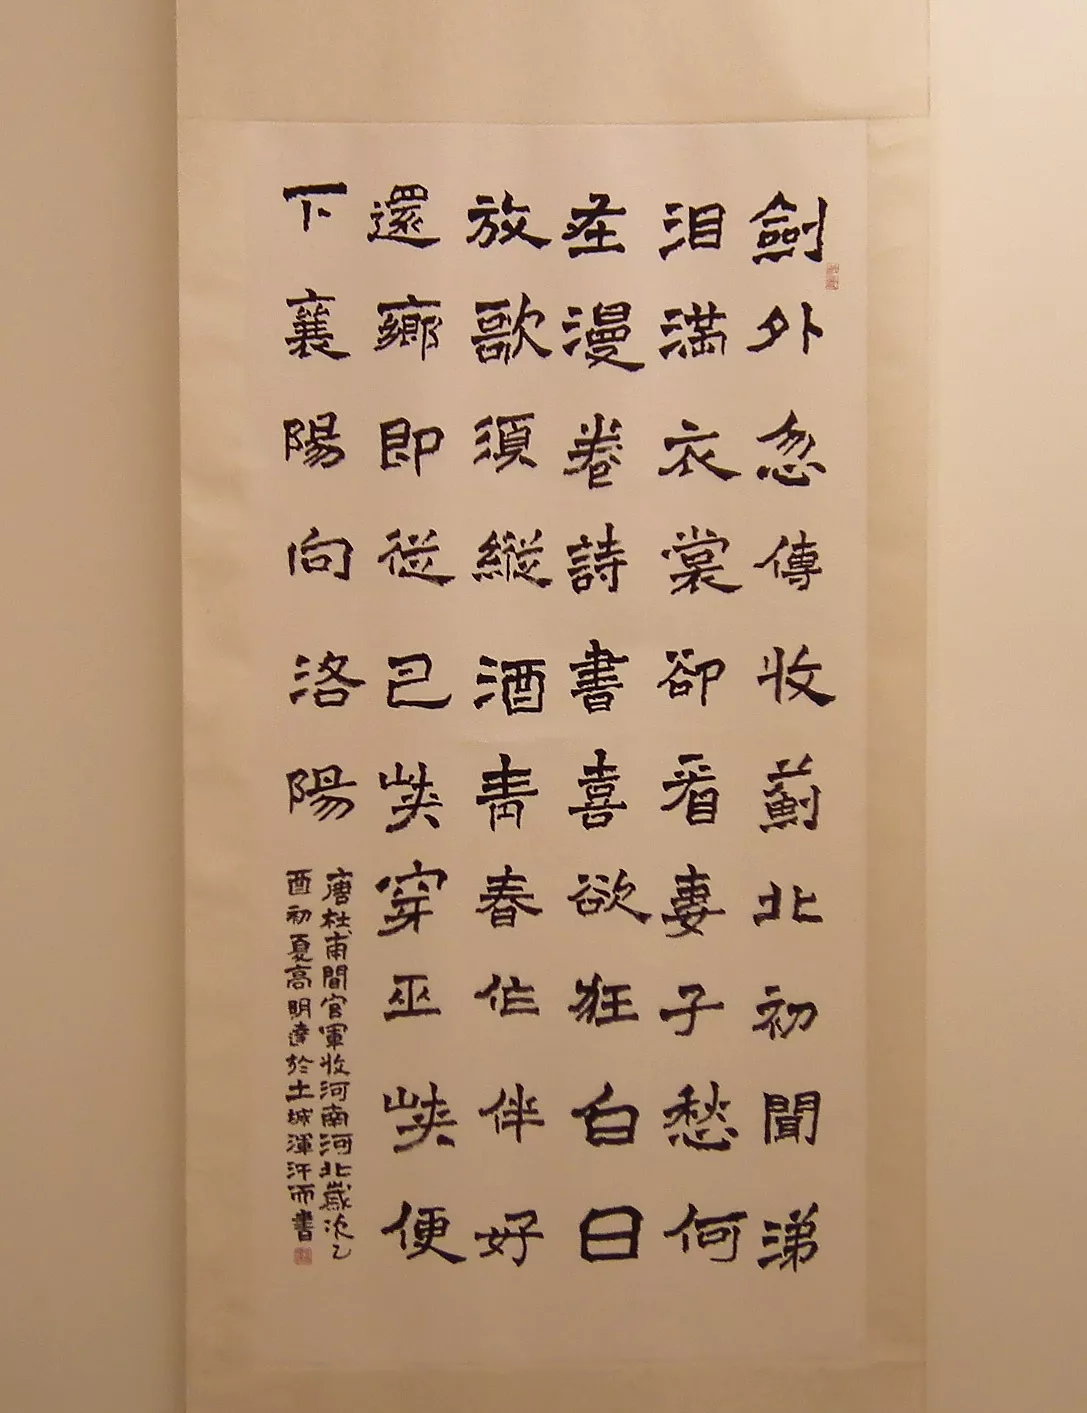 劍外忽傳收薊北初聞涕
泪滿衣裳卻看妻子愁何
在漫卷詩書喜欲狂白日
放歌須縱酒青春作伴好
還鄉即從巴峽穿巫峽便
下襄陽向洛陽
唐杜甫聞官軍收河南河北歲次乙
酉初夏高明達於土城渾汗而書